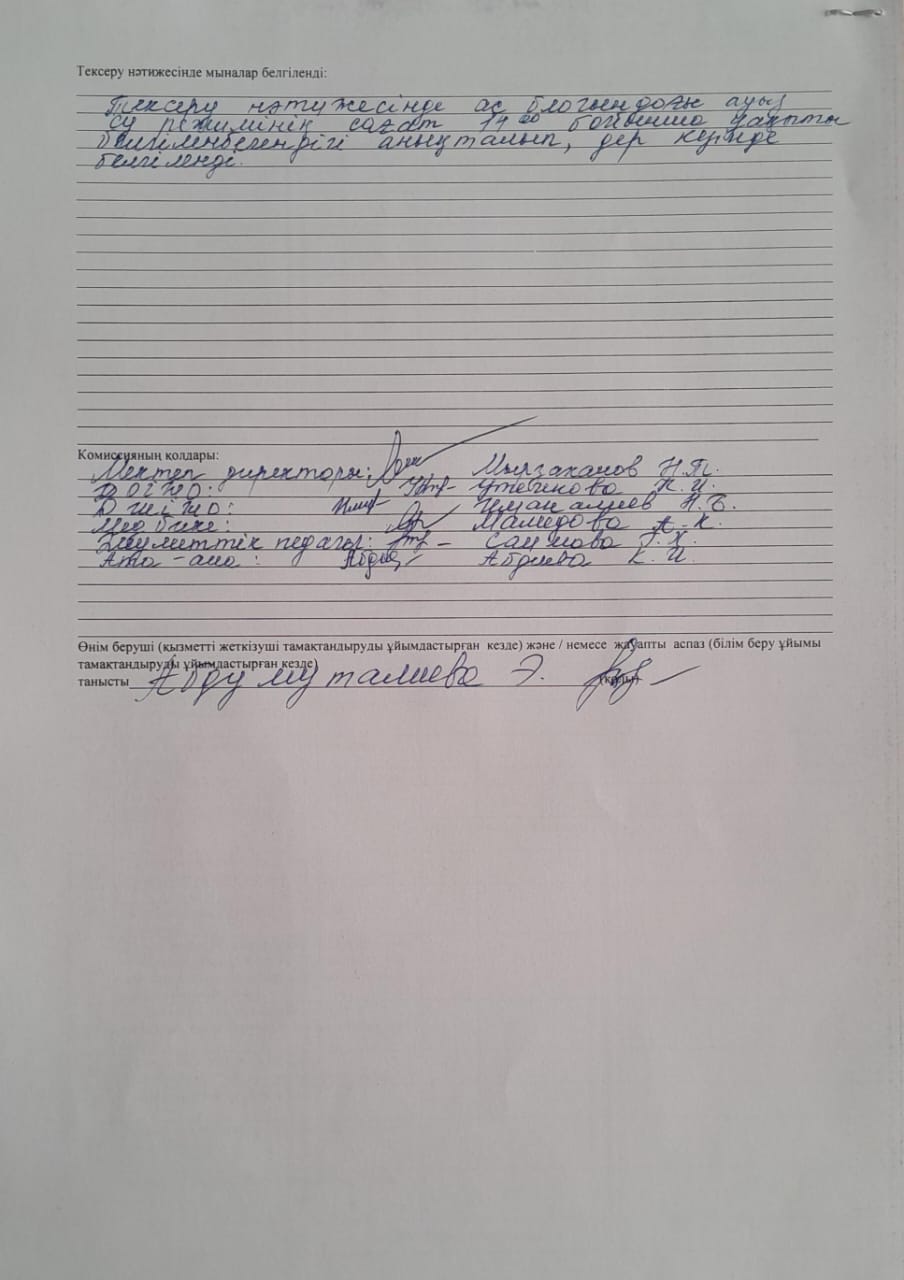 Тексеру нәтижесінде мыналар белгіленді:
Тексеру нәтижесінде ас блогындағы ауыз
су режимінің сағат 14 00 бойынша уақытты
белгіленбегендігі анықталып, дер кезінде
белгіленді.
Комиссияның қолдары:
Мектеп директоры: Мырзаханов Н.Т.
ДОІЖО: Утегенова К.И.
ДТІЖО: Иманалиев Н.Б.
Медбике: Мамедова А.К.
Әлуметтік педагог: Саитова Г.Х.
Ата-ана: Абдиева К.И.
Өнім беруші (қызметті жеткізуші тамақтандыруды ұйымдастырған кезде) және / немесе жауапты аспаз (білім беру ұйымы
тамақтандыруды ұйымдастырған кезде)
танысты Абдумуталиева Э. (қолы)